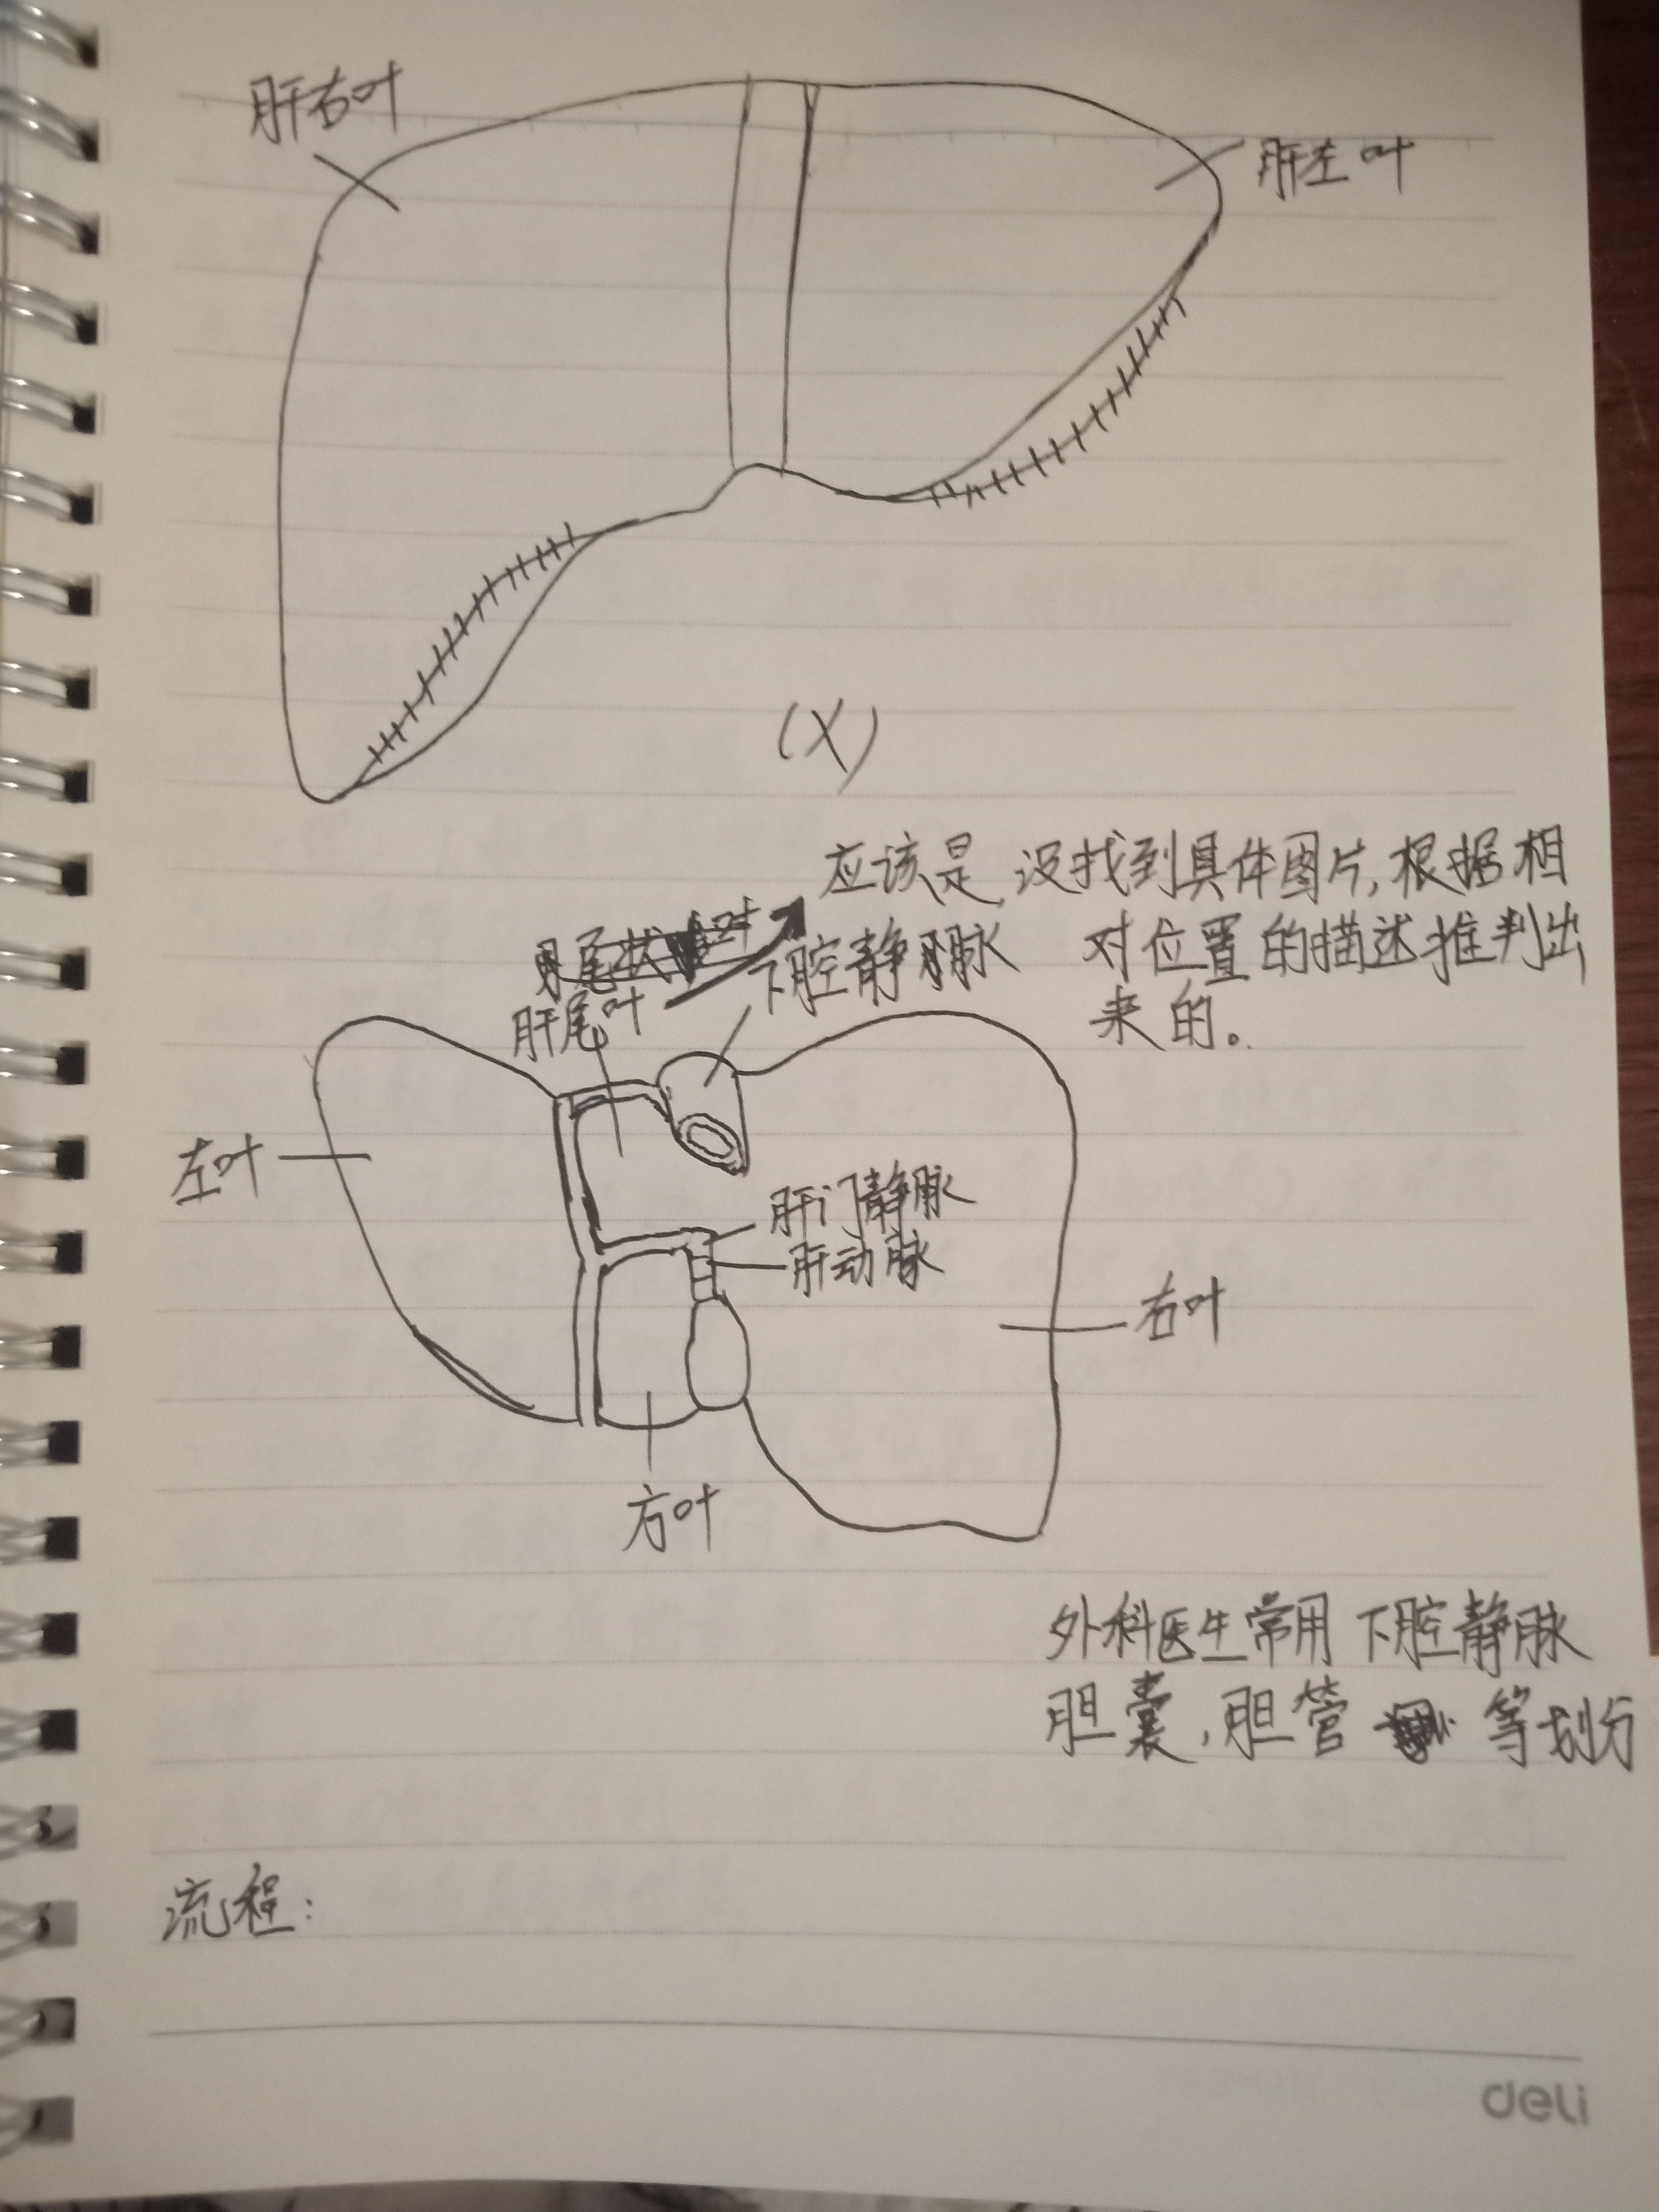 肝右叶
肝左叶
(X)
应该是,没找到具体图片,根据相
对位置的描述推判出
来的。
肝尾叶
下腔静脉
左叶
肝门静脉
肝动脉
右叶
方叶
外科医生常用下腔静脉
胆囊,胆管 等划分
流程:
deli